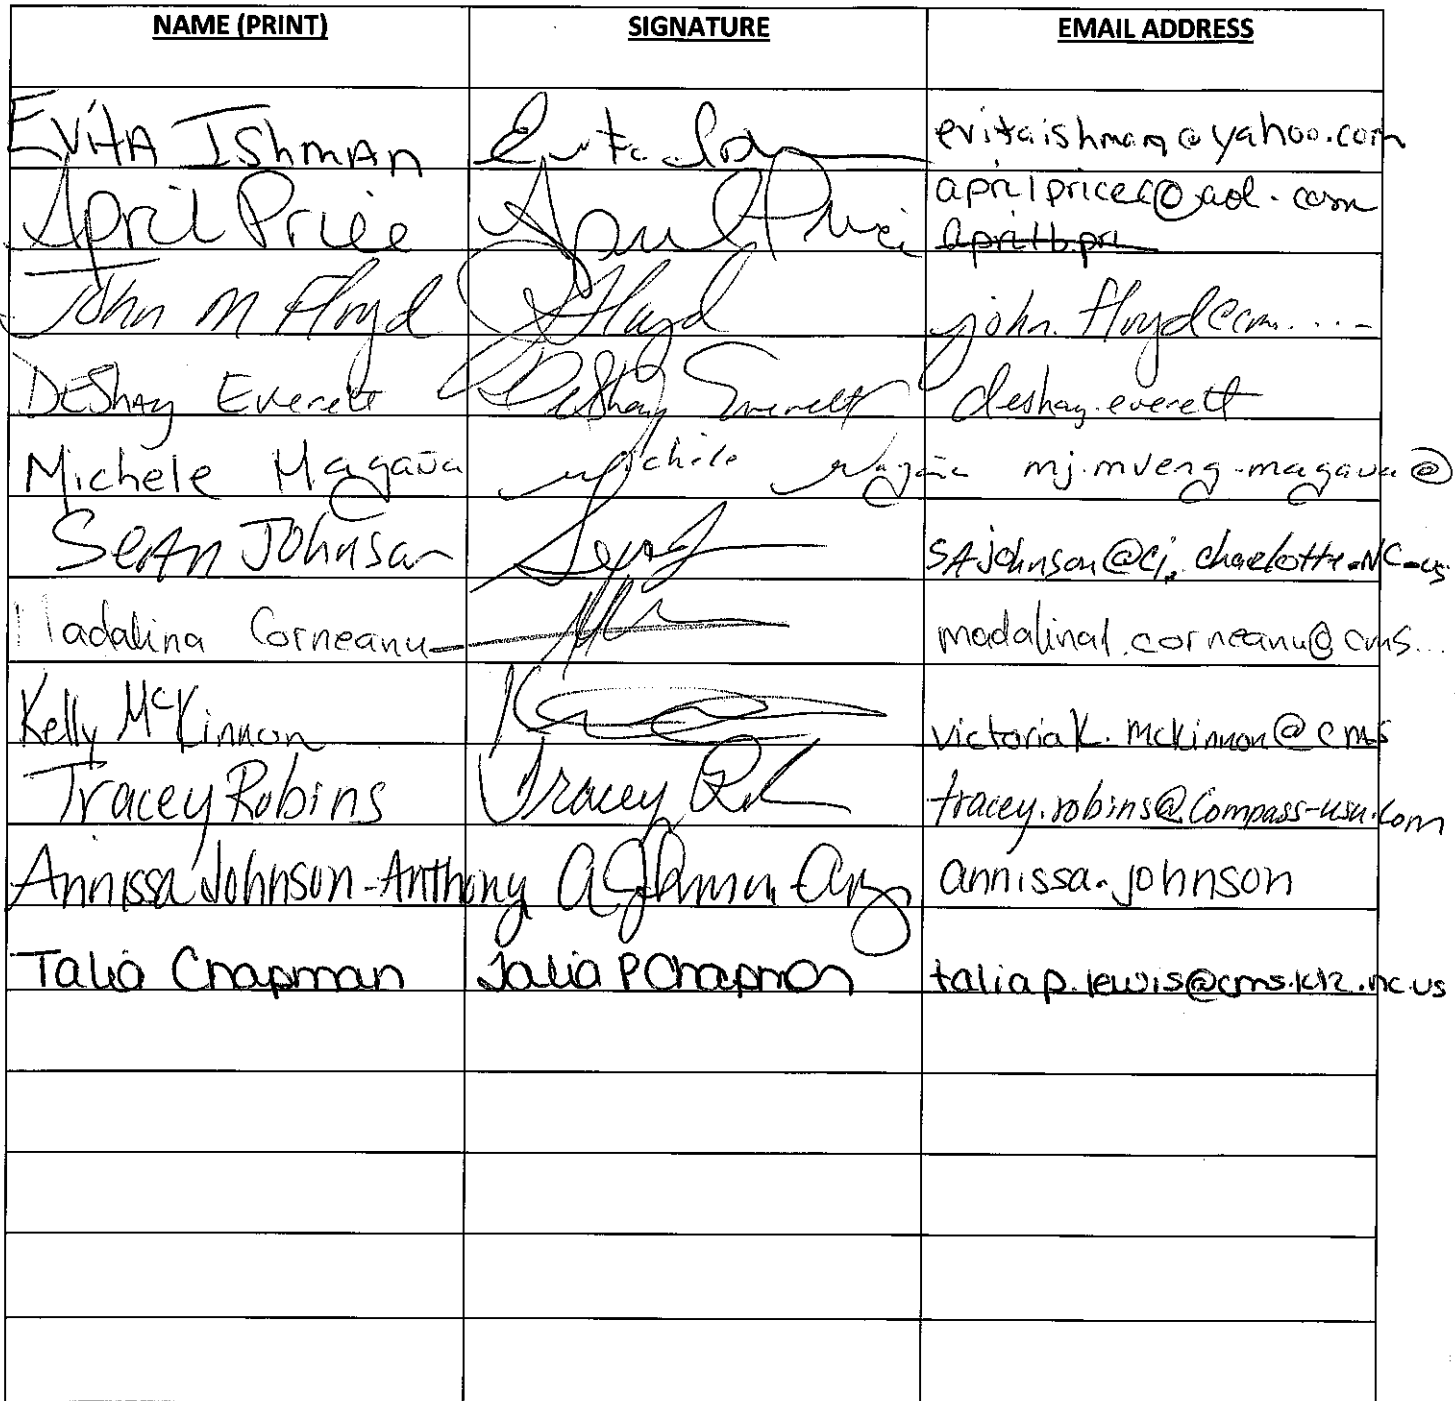 NAME (PRINT) SIGNATURE EMAIL ADDRESS
EVITA IShmAn evitaishman@yahoo.com
April Price April Price aprilpricel@aol.com
aprillb.pri
John M Floyd Floyd john.floyd@cm....-
DEShay Everett DeShay Everett deshay.everett
Michele Magaña Michele Magaña
SeAn Johnson SAjohnson@ci.charlotte.NC.us
Madalina Corneanu madalina1.corneanu@cms...
Kelly McKinnon victoriaK.mckinnon@cms
Tracey Robins Tracey tracey.robins@Compass-usa.com
Annissa Johnson-Anthony annissa.johnson
Talia Chapman Talia P Chapman taliap.lewis@cms.k12.nc.us